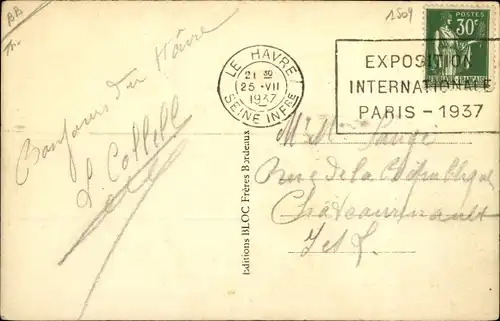 BB
1509
POSTES
30c
LE HAVRE
21 30
25 -VII
1937
SEINE INFRE
EXPOSITION
INTERNATIONALE
PARIS - 1937
Bonjour du Hâvre
Editions BLOC Frères Bordeaux
Rue de la République
Châteaurenault
I et L.